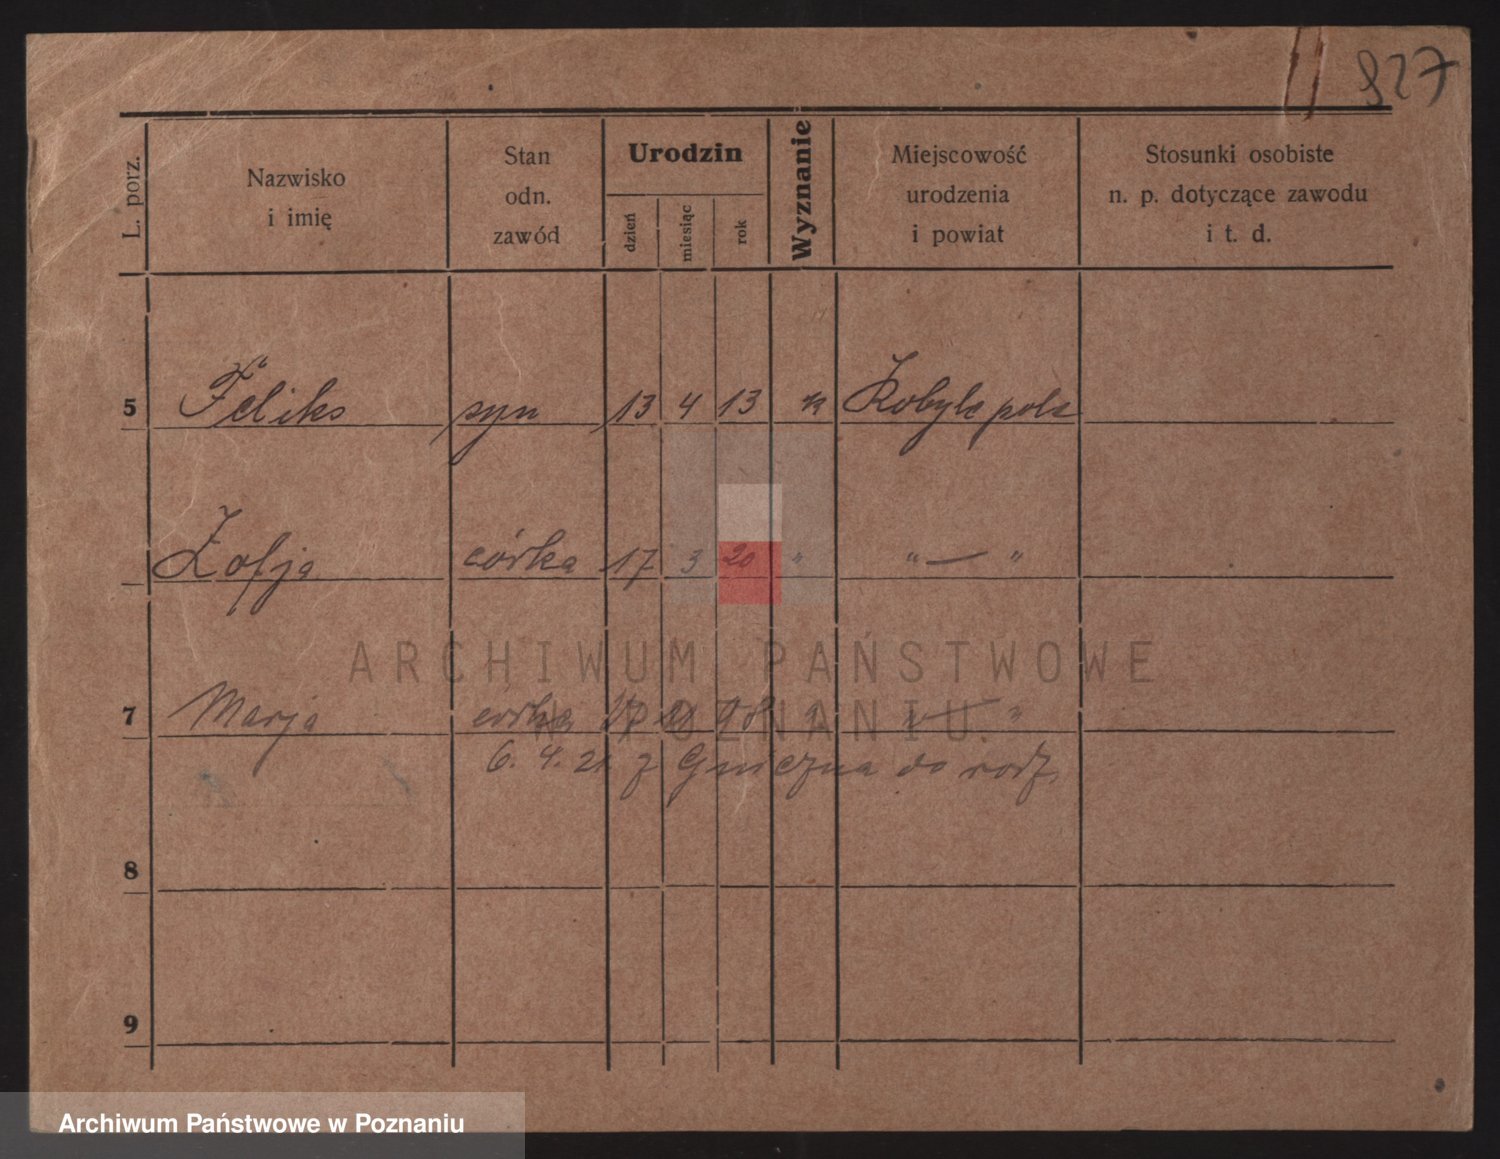 827
L. porz.
Nazwisko
i imię
Stan
odn.
zawód
Urodzin
dzień
miesiąc
rok
Wyznanie
Miejscowość
urodzenia
i powiat
Stosunki osobiste
n. p. dotyczące zawodu
i t. d.
5 Feliks syn 13 4 13 k Kobylepole
Zofja córka 17 3 20 " " — "
ARCHIWUM PAŃSTWOWE
7 Marja córka 18 "
W POZNANIU
6. 4. 21 z Gniezna do rodz.
8
9
Archiwum Państwowe w Poznaniu